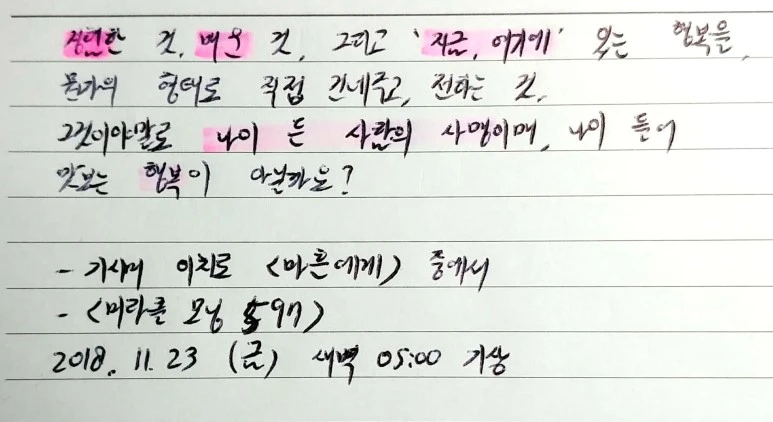 경험한 것, 배운 것, 그리고 '지금, 여기에' 있는 행복을,
뭔가의 형태로 직접 건네주고, 전하는 것.
그것이야말로 나이 든 사람의 사명이며, 나이 들어
맛보는 행복이 아닐까요?
- 기시미 이치로 <마흔에게> 중에서
- <미라클 모닝 597>
2018. 11. 23 (금) 새벽 05:00 기상